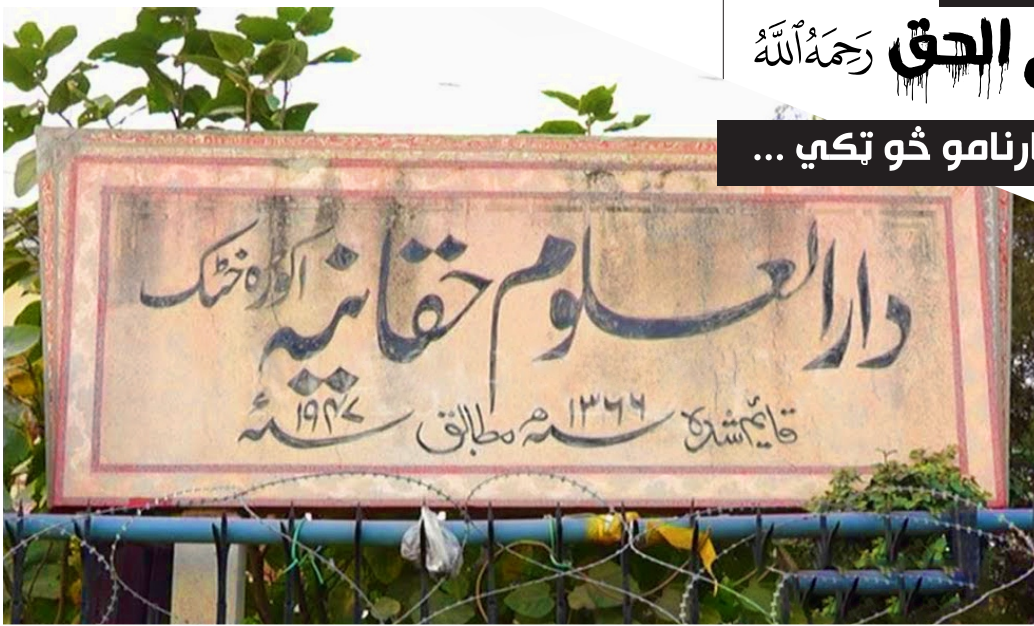 الحق رَحِمَهُ ٱللَّهُ
ارنامو څو ټکي ...
دارالعلوم حقانیہ اکوڑہ خٹک
قائم شدہ ۱۳۶۶ھ مطابق ۱۹۴۷ء